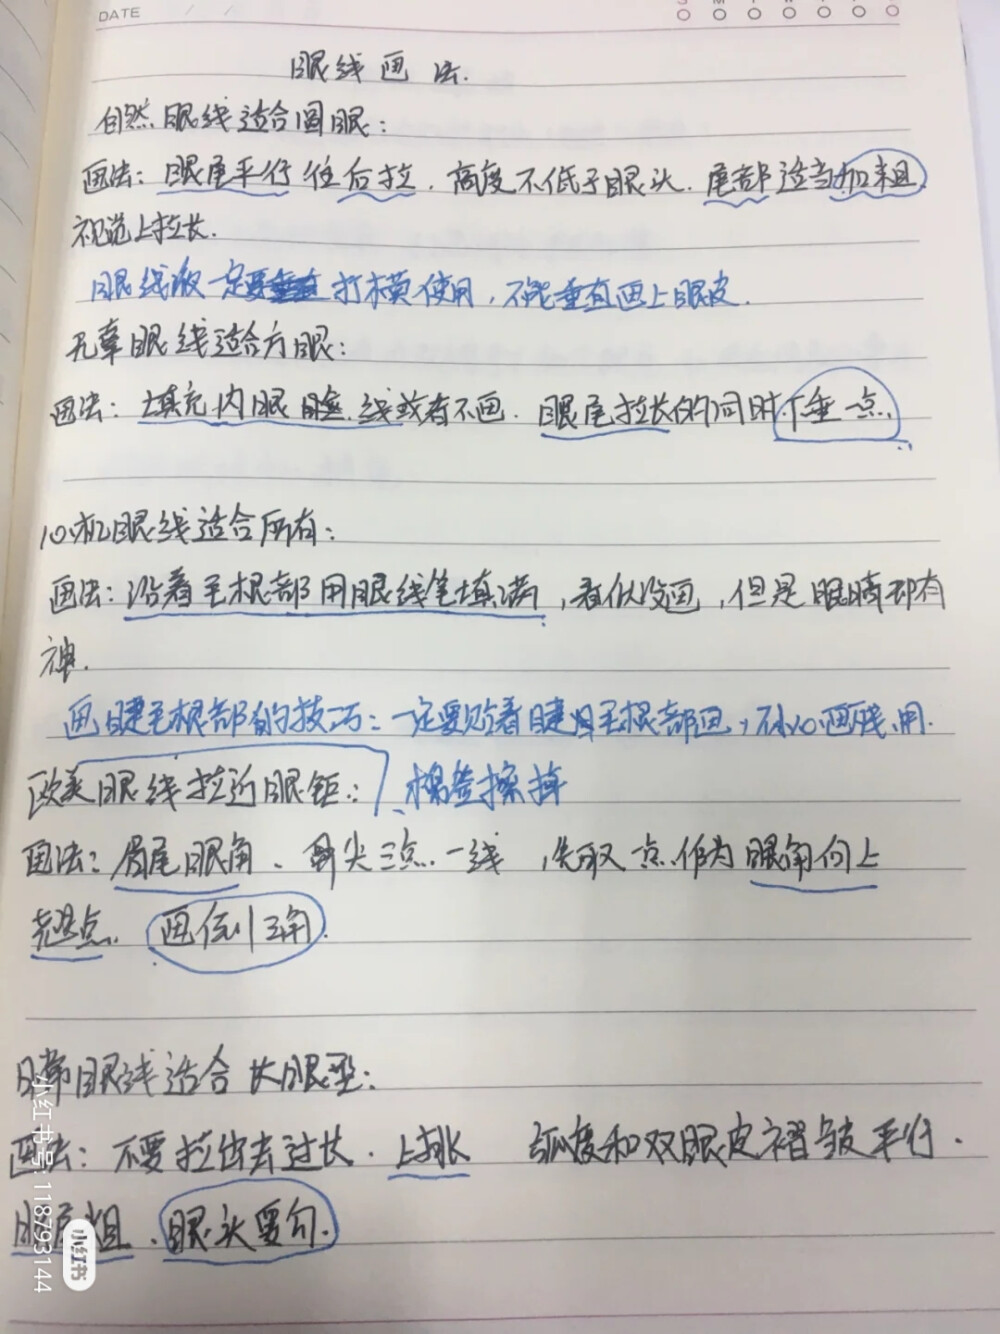 DATE / /
S M T W T F S
眼线画法.
自然眼线适合圆眼:
画法: 眼尾平行往后拉. 高度不低于眼头. 尾部适当加粗
视觉上拉长.
眼线液一定要 打横使用, 不能垂直画上眼皮.
无辜眼线适合方眼:
画法: 填充内眼睑. 线或者不画. 眼尾拉长的同时下垂一点.
心机眼线适合所有:
画法: 沿着毛根部用眼线笔填满, 看似没画, 但是眼睛却有
神.
画睫毛根部的技巧: 一定要贴着睫毛根部画, 不小心画残, 用
棉签擦掉
欧美眼线拉近眼距:
画法: 眉尾眼角、鼻尖三点一线, 先取点作为眼角向上
起点. 画倒三角.
日常眼线适合长眼型:
画法: 不要拉出去过长. 上扬 弧度和双眼皮褶皱平行.
眼尾粗. 眼头要勾.
小红书号: 118793144
小红书